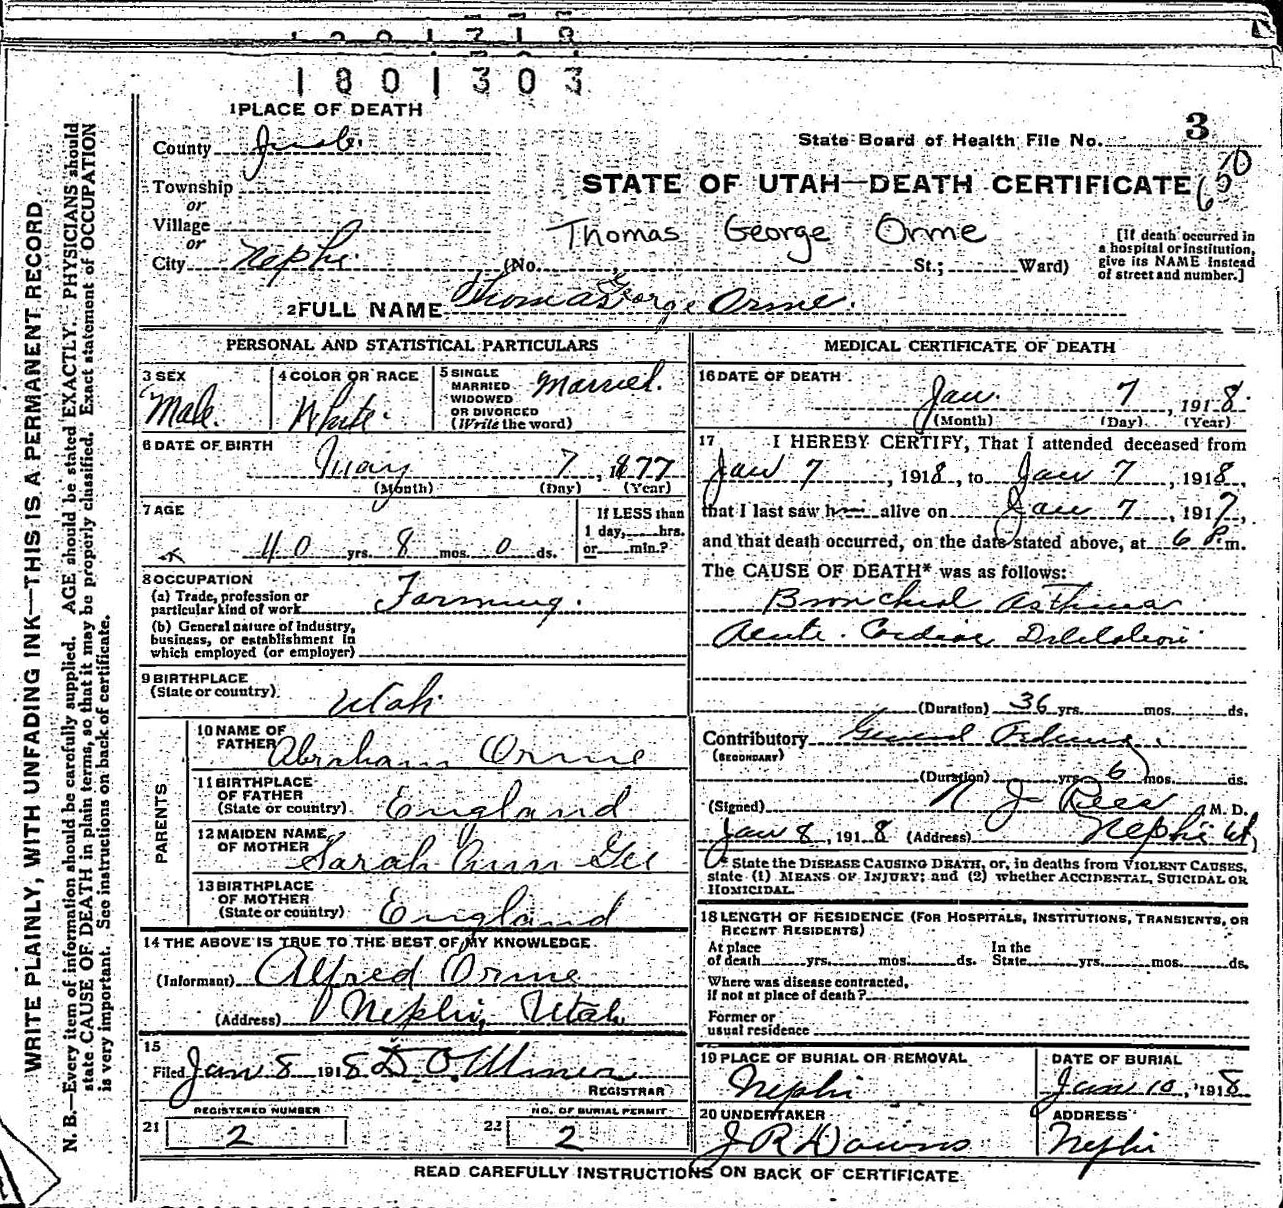 1801303
1 PLACE OF DEATH
County Juab.
State Board of Health File No. 3
Township
or
STATE OF UTAH—DEATH CERTIFICATE 650
Village
or
Thomas George Orme
City Nephi (No. St.; Ward)
[If death occurred in
a hospital or institution,
give its NAME instead
of street and number.]
2 FULL NAME Thomas George Orme.
PERSONAL AND STATISTICAL PARTICULARS
3 SEX
Male.
4 COLOR OR RACE
White.
5 SINGLE
MARRIED
WIDOWED
OR DIVORCED
(Write the word)
Married.
6 DATE OF BIRTH
May 7, 1877
(Month) (Day) (Year)
7 AGE
40 yrs. 8 mos. 0 ds.
If LESS than
1 day, hrs.
or min.?
8 OCCUPATION
(a) Trade, profession or
particular kind of work Farming.
(b) General nature of industry,
business, or establishment in
which employed (or employer)
9 BIRTHPLACE
(State or country)
Utah
PARENTS
10 NAME OF
FATHER Abraham Orme
11 BIRTHPLACE
OF FATHER
(State or country) England
12 MAIDEN NAME
OF MOTHER Sarah Ann Gee
13 BIRTHPLACE
OF MOTHER
(State or country) England
14 THE ABOVE IS TRUE TO THE BEST OF MY KNOWLEDGE
(Informant) Alfred Orme
(Address) Nephi, Utah
15
Filed Jan 8 1918 D. O. Miner
REGISTRAR
REGISTERED NUMBER
21 2
NO. OF BURIAL PERMIT
22 2
MEDICAL CERTIFICATE OF DEATH
16 DATE OF DEATH
Jan. 7, 1918.
(Month) (Day) (Year)
17 I HEREBY CERTIFY, That I attended deceased from
Jan 7, 1918, to Jan 7, 1918,
that I last saw him alive on Jan 7, 1917,
and that death occurred, on the date stated above, at 6 P.m.
The CAUSE OF DEATH* was as follows:
Bronchial Asthma
Acute Cardiac Dilelation
(Duration) 36 yrs. mos. ds.
Contributory General
(SECONDARY)
(Duration) yrs. 6 mos. ds.
(Signed) N J Rees M. D.
Jan 8, 1918 (Address) Nephi Ut,
* State the DISEASE CAUSING DEATH, or, in deaths from VIOLENT CAUSES,
state (1) MEANS OF INJURY; and (2) whether ACCIDENTAL, SUICIDAL OR
HOMICIDAL.
18 LENGTH OF RESIDENCE (FOR HOSPITALS, INSTITUTIONS, TRANSIENTS, OR
RECENT RESIDENTS)
At place
of death yrs. mos. ds.
In the
State yrs. mos. ds.
Where was disease contracted,
if not at place of death?
Former or
usual residence
19 PLACE OF BURIAL OR REMOVAL
Nephi
DATE OF BURIAL
Jan 10, 1918
20 UNDERTAKER
J R Downs
ADDRESS
Nephi
READ CAREFULLY INSTRUCTIONS ON BACK OF CERTIFICATE
WRITE PLAINLY, WITH UNFADING INK—THIS IS A PERMANENT RECORD
N. B.—Every item of information should be carefully supplied. AGE should be stated EXACTLY. PHYSICIANS should
state CAUSE OF DEATH in plain terms, so that it may be properly classified. Exact statement of OCCUPATION
is very important. See instructions on back of certificate.